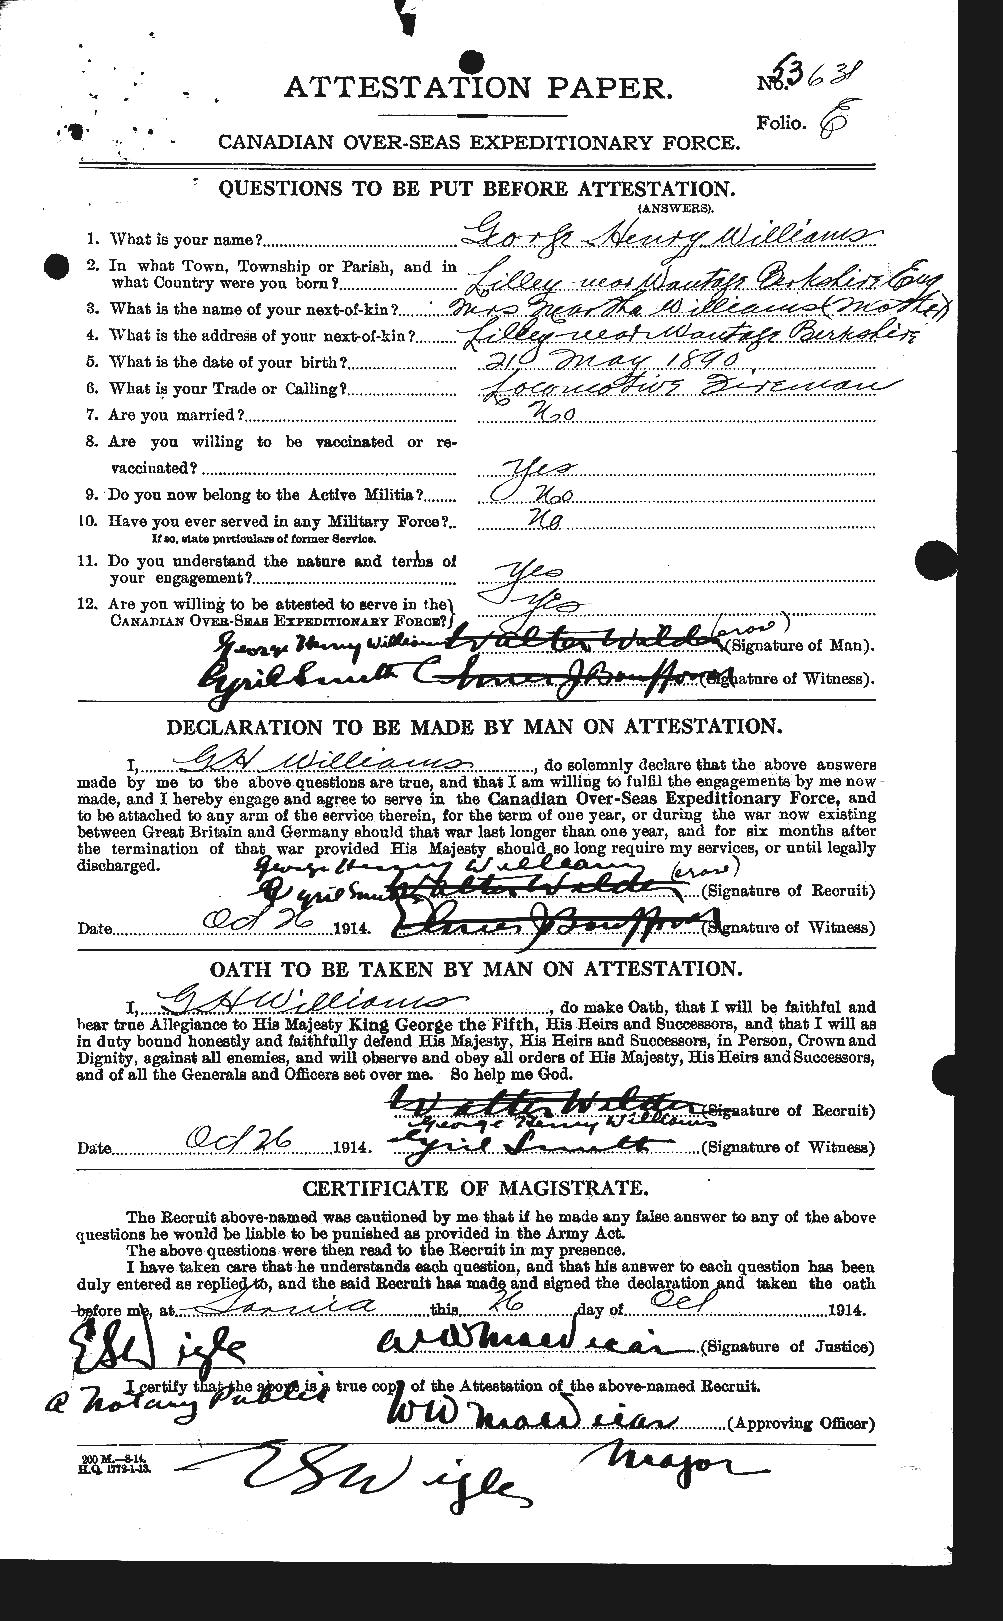 ATTESTATION PAPER.
No. 53638
Folio. E
CANADIAN OVER-SEAS EXPEDITIONARY FORCE.
QUESTIONS TO BE PUT BEFORE ATTESTATION.
(ANSWERS).
1. What is your name? George Henry Williams
2. In what Town, Township or Parish, and in what Country were you born? Lilley near Wantage Berkshire Eng
3. What is the name of your next-of-kin? Mrs Martha Williams (Mother)
4. What is the address of your next-of-kin? Lilley near Wantage Berkshire
5. What is the date of your birth? 21 May 1890
6. What is your Trade or Calling? Locomotive Fireman
7. Are you married? No
8. Are you willing to be vaccinated or re-
vaccinated? Yes
9. Do you now belong to the Active Militia? No
10. Have you ever served in any Military Force? No
If so, state particulars of former Service.
11. Do you understand the nature and terms of
your engagement? Yes
12. Are you willing to be attested to serve in the
CANADIAN OVER-SEAS EXPEDITIONARY FORCE? Yes
George Henry Williams Walter Walder (erase) (Signature of Man).
Cyril Smith (Signature of Witness).
DECLARATION TO BE MADE BY MAN ON ATTESTATION.
I, G H Williams, do solemnly declare that the above answers
made by me to the above questions are true, and that I am willing to fulfil the engagements by me now
made, and I hereby engage and agree to serve in the Canadian Over-Seas Expeditionary Force, and
to be attached to any arm of the service therein, for the term of one year, or during the war now existing
between Great Britain and Germany should that war last longer than one year, and for six months after
the termination of that war provided His Majesty should so long require my services, or until legally
discharged.
George Henry Williams (erase)
Cyril Smith Walter Walder (Signature of Recruit)
Date Oct 26 1914. (Signature of Witness)
OATH TO BE TAKEN BY MAN ON ATTESTATION.
I, G H Williams, do make Oath, that I will be faithful and
bear true Allegiance to His Majesty King George the Fifth, His Heirs and Successors, and that I will as
in duty bound honestly and faithfully defend His Majesty, His Heirs and Successors, in Person, Crown and
Dignity, against all enemies, and will observe and obey all orders of His Majesty, His Heirs and Successors,
and of all the Generals and Officers set over me. So help me God.
Walter Walder (Signature of Recruit)
George Henry Williams
Date Oct 26 1914. Cyril Smith (Signature of Witness)
CERTIFICATE OF MAGISTRATE.
The Recruit above-named was cautioned by me that if he made any false answer to any of the above
questions he would be liable to be punished as provided in the Army Act.
The above questions were then read to the Recruit in my presence.
I have taken care that he understands each question, and that his answer to each question has been
duly entered as replied to, and the said Recruit has made and signed the declaration and taken the oath
before me, at Sarnia this 26 day of Oct 1914.
ESWigle (Signature of Justice)
I certify that the above is a true copy of the Attestation of the above-named Recruit.
a Notary Public
(Approving Officer)
200 M.—8-14.
H.Q. 1772-1-13.
ESWigle
Major